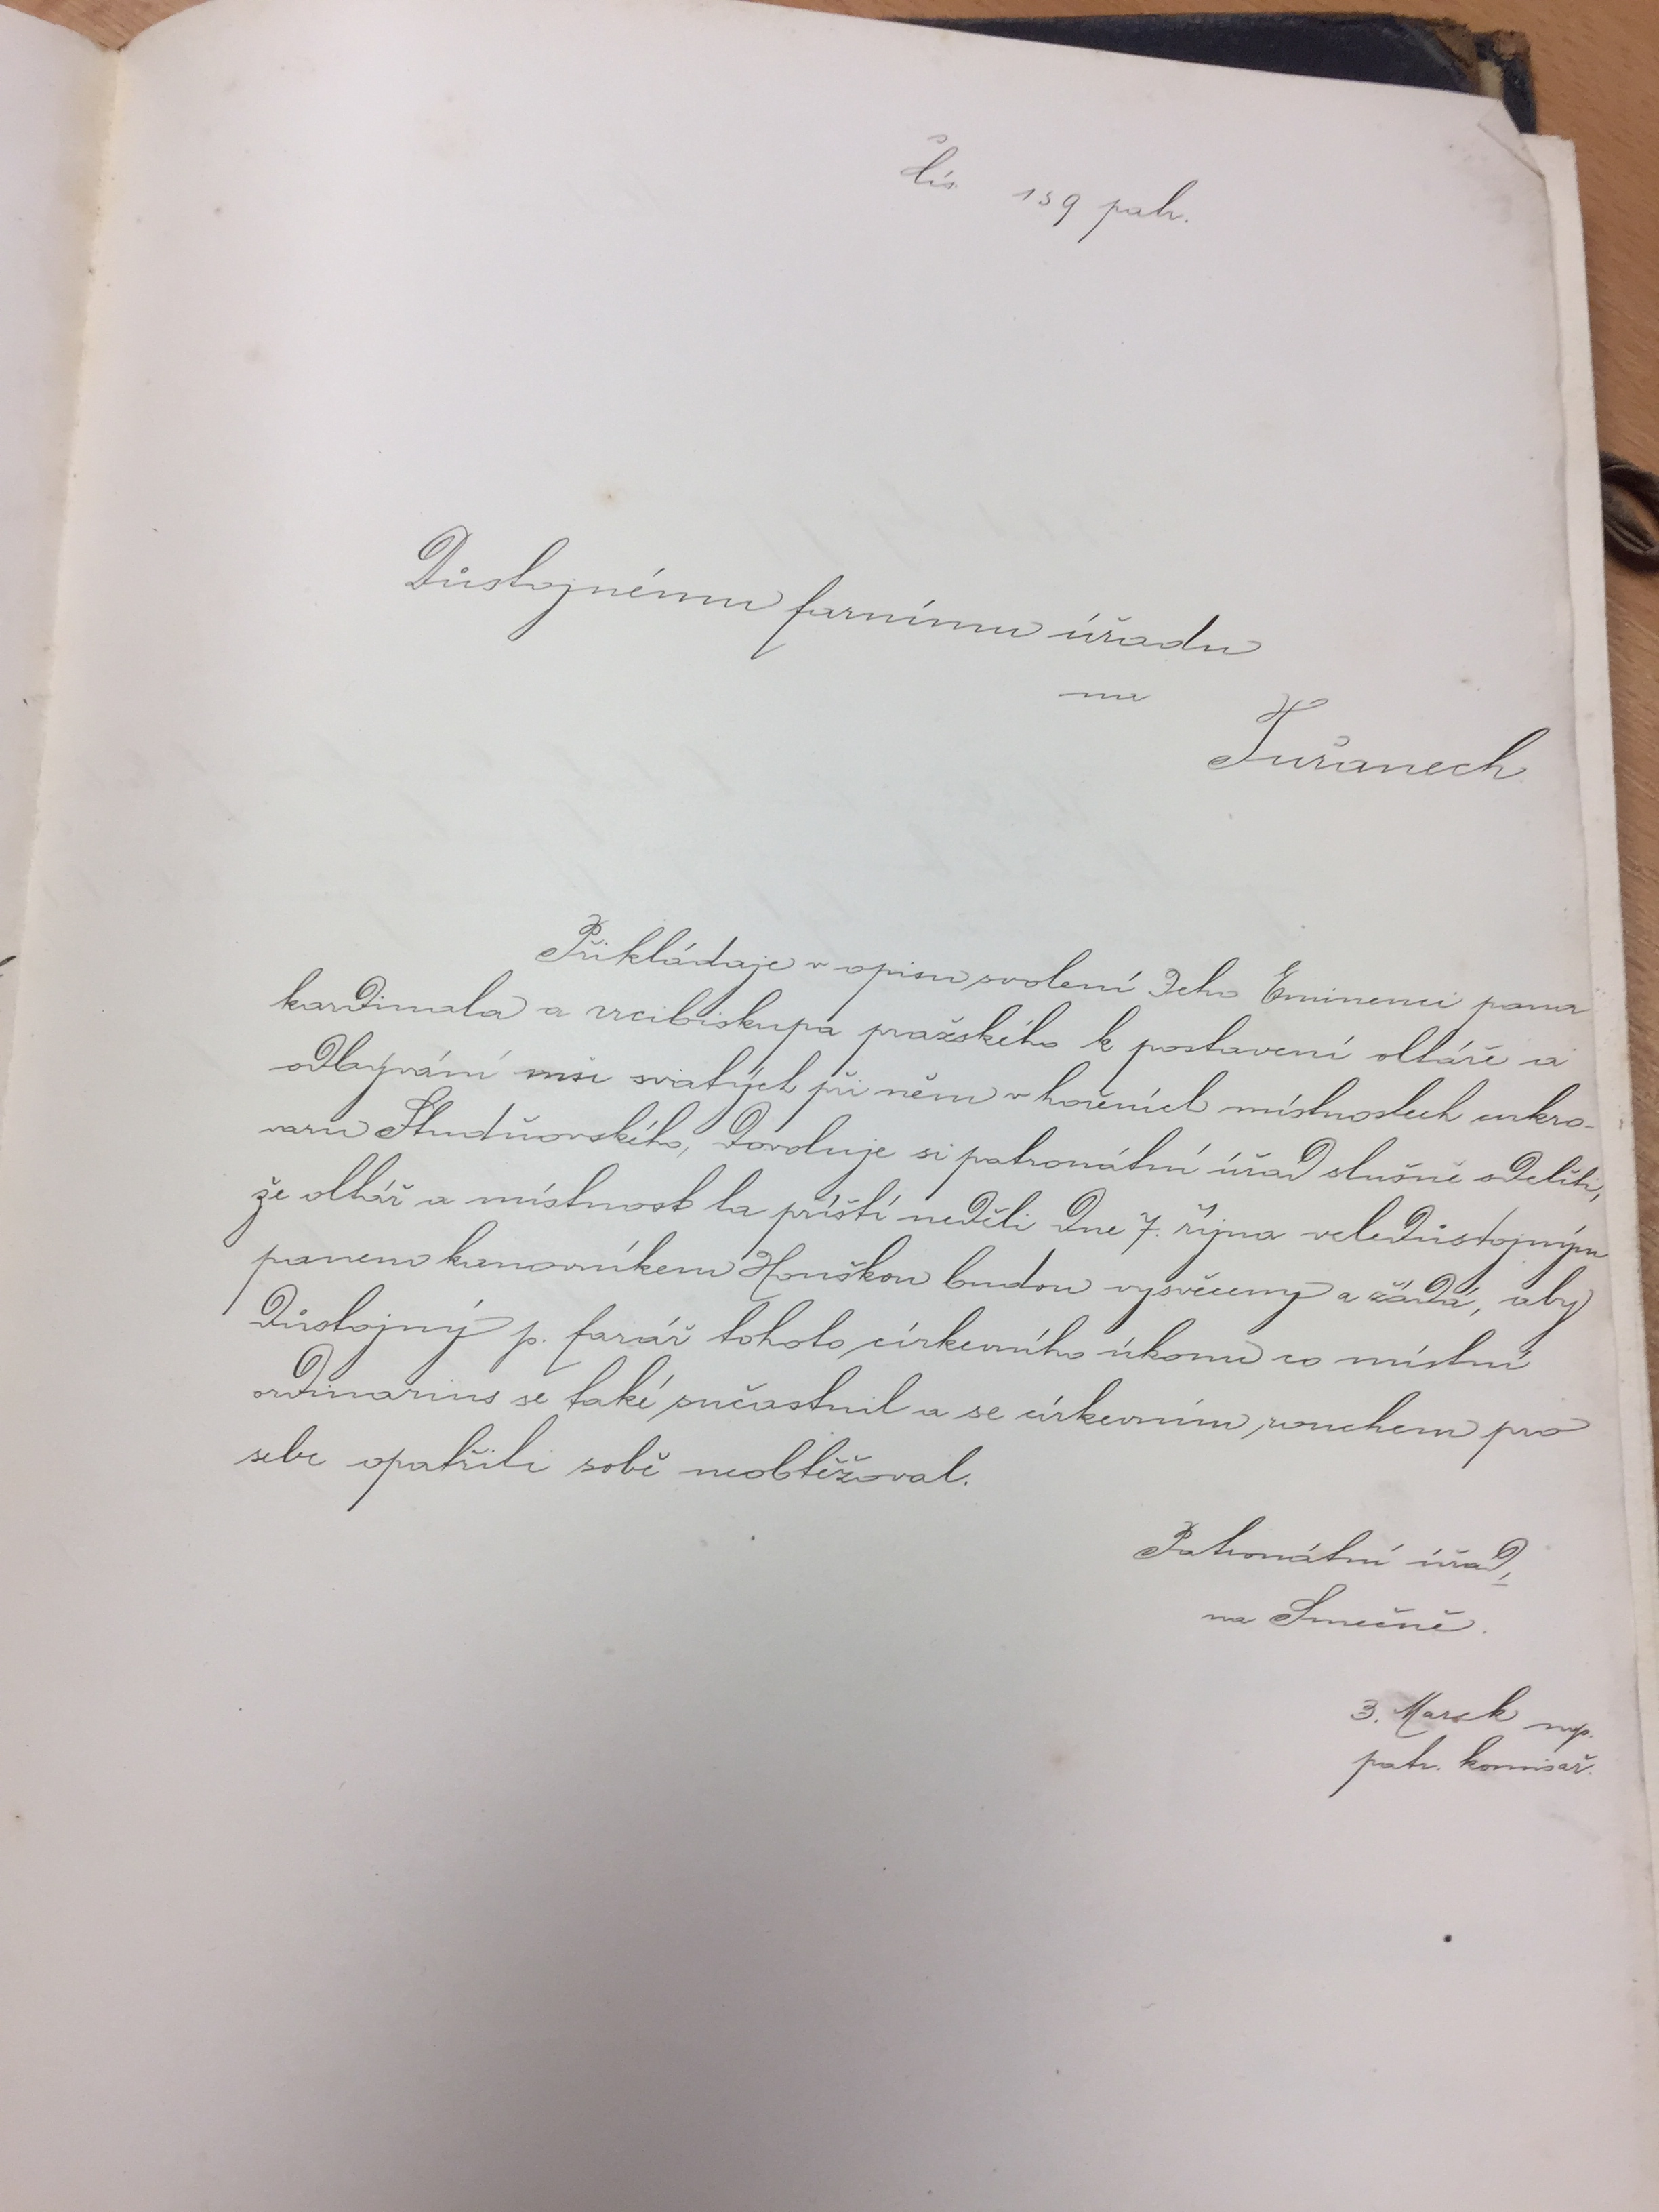 Čís. 159 patr.
Důstojnému farnímu úřadu
na
Tuřanech.
Přikládaje v opisu svolení Jeho Eminenci pana
kardinala a arcibiskupa pražského k postavení oltáře a
odbývání mše svatých při něm v hořeních místnostech cukro-
varu Studňovského, dovoluje si patronátní úřad slušně sděliti,
že oltář a místnost ta příští neděli dne 7. října veledůstojným
panem kanovníkem Houškou budou vysvěceny a žádá, aby
Důstojný p. farář tohoto církevního úkonu co místní
ordinarius se také sučastnil a se církevním rouchem pro
sebe opatřiti sobě neobtěžoval.
Patronátní úřad,
na Smečně.
J. Marek mp.
patr. komisař.